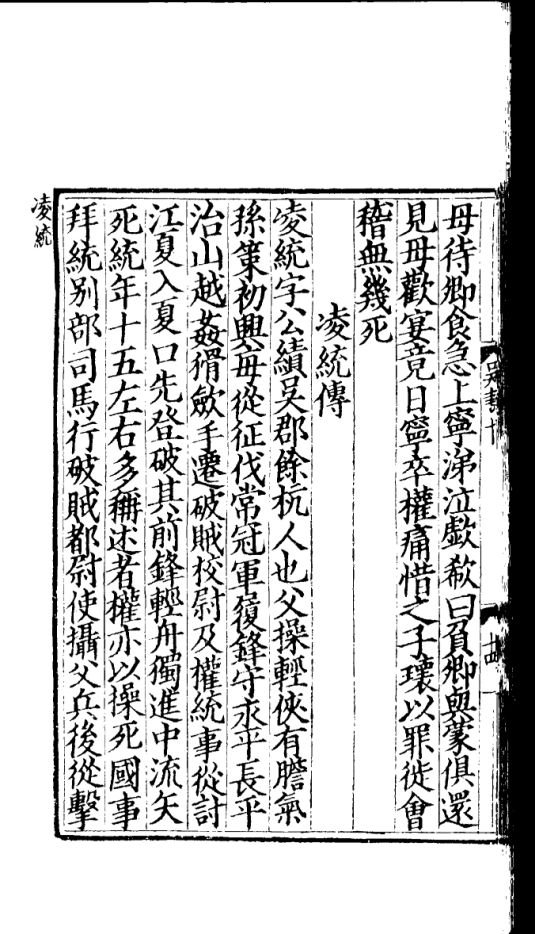 母待卿食急上寧涕泣歔欷曰負卿與蒙俱還
見母歡宴竟日寧卒權痛惜之子瓌以罪徙會
稽無幾死
凌統傳
凌統字公績吳郡餘杭人也父操輕俠有膽氣
孫策初興每從征伐常冠軍履鋒守永平長平
治山越姦猾斂手遷破賊校尉及權統事從討
江夏入夏口先登破其前鋒輕舟獨進中流矢
死統年十五左右多稱述者權亦以操死國事
拜統別部司馬行破賊都尉使攝父兵後從擊
凌統